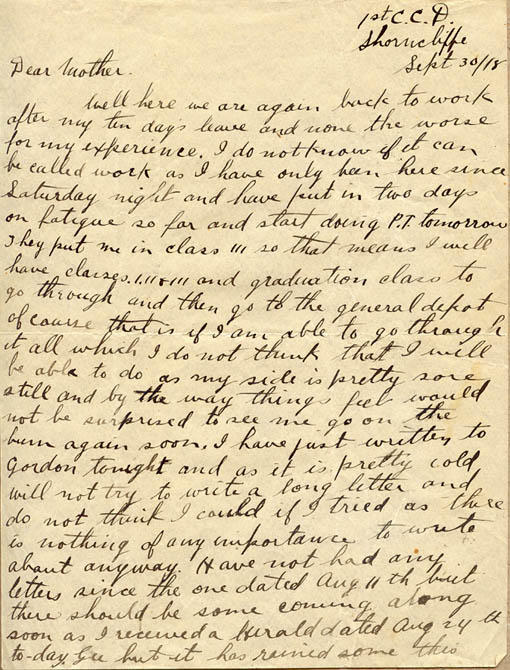 1st C.C.D.
Shorncliffe
Sept 30/18
Dear Mother.
Well here we are again back to work
after my ten days leave and none the worse
for my experience. I do not know if it can
be called work as I have only been here since
Saturday night and have put in two days
on fatigue so far and start doing P.T. tomorrow
They put me in class III so that means I will
have classes. I. II & III and graduation class to
go through and then go to the general depot
of course that is if I am able to go through
it all which I do not think that I will
be able to do as my side is pretty sore
still and by the way things feel would
not be surprised to see me go on the
bum again soon. I have just written to
Gordon tonight and as it is pretty cold
will not try to write a long letter and
do not think I could if I tried as there
is nothing of any importance to write
about anyway. Have not had any
letters since the one dated Aug 11th but
there should be some coming along
soon as I received a Herald dated Aug 24th
to-day. Gee but it has rained some this